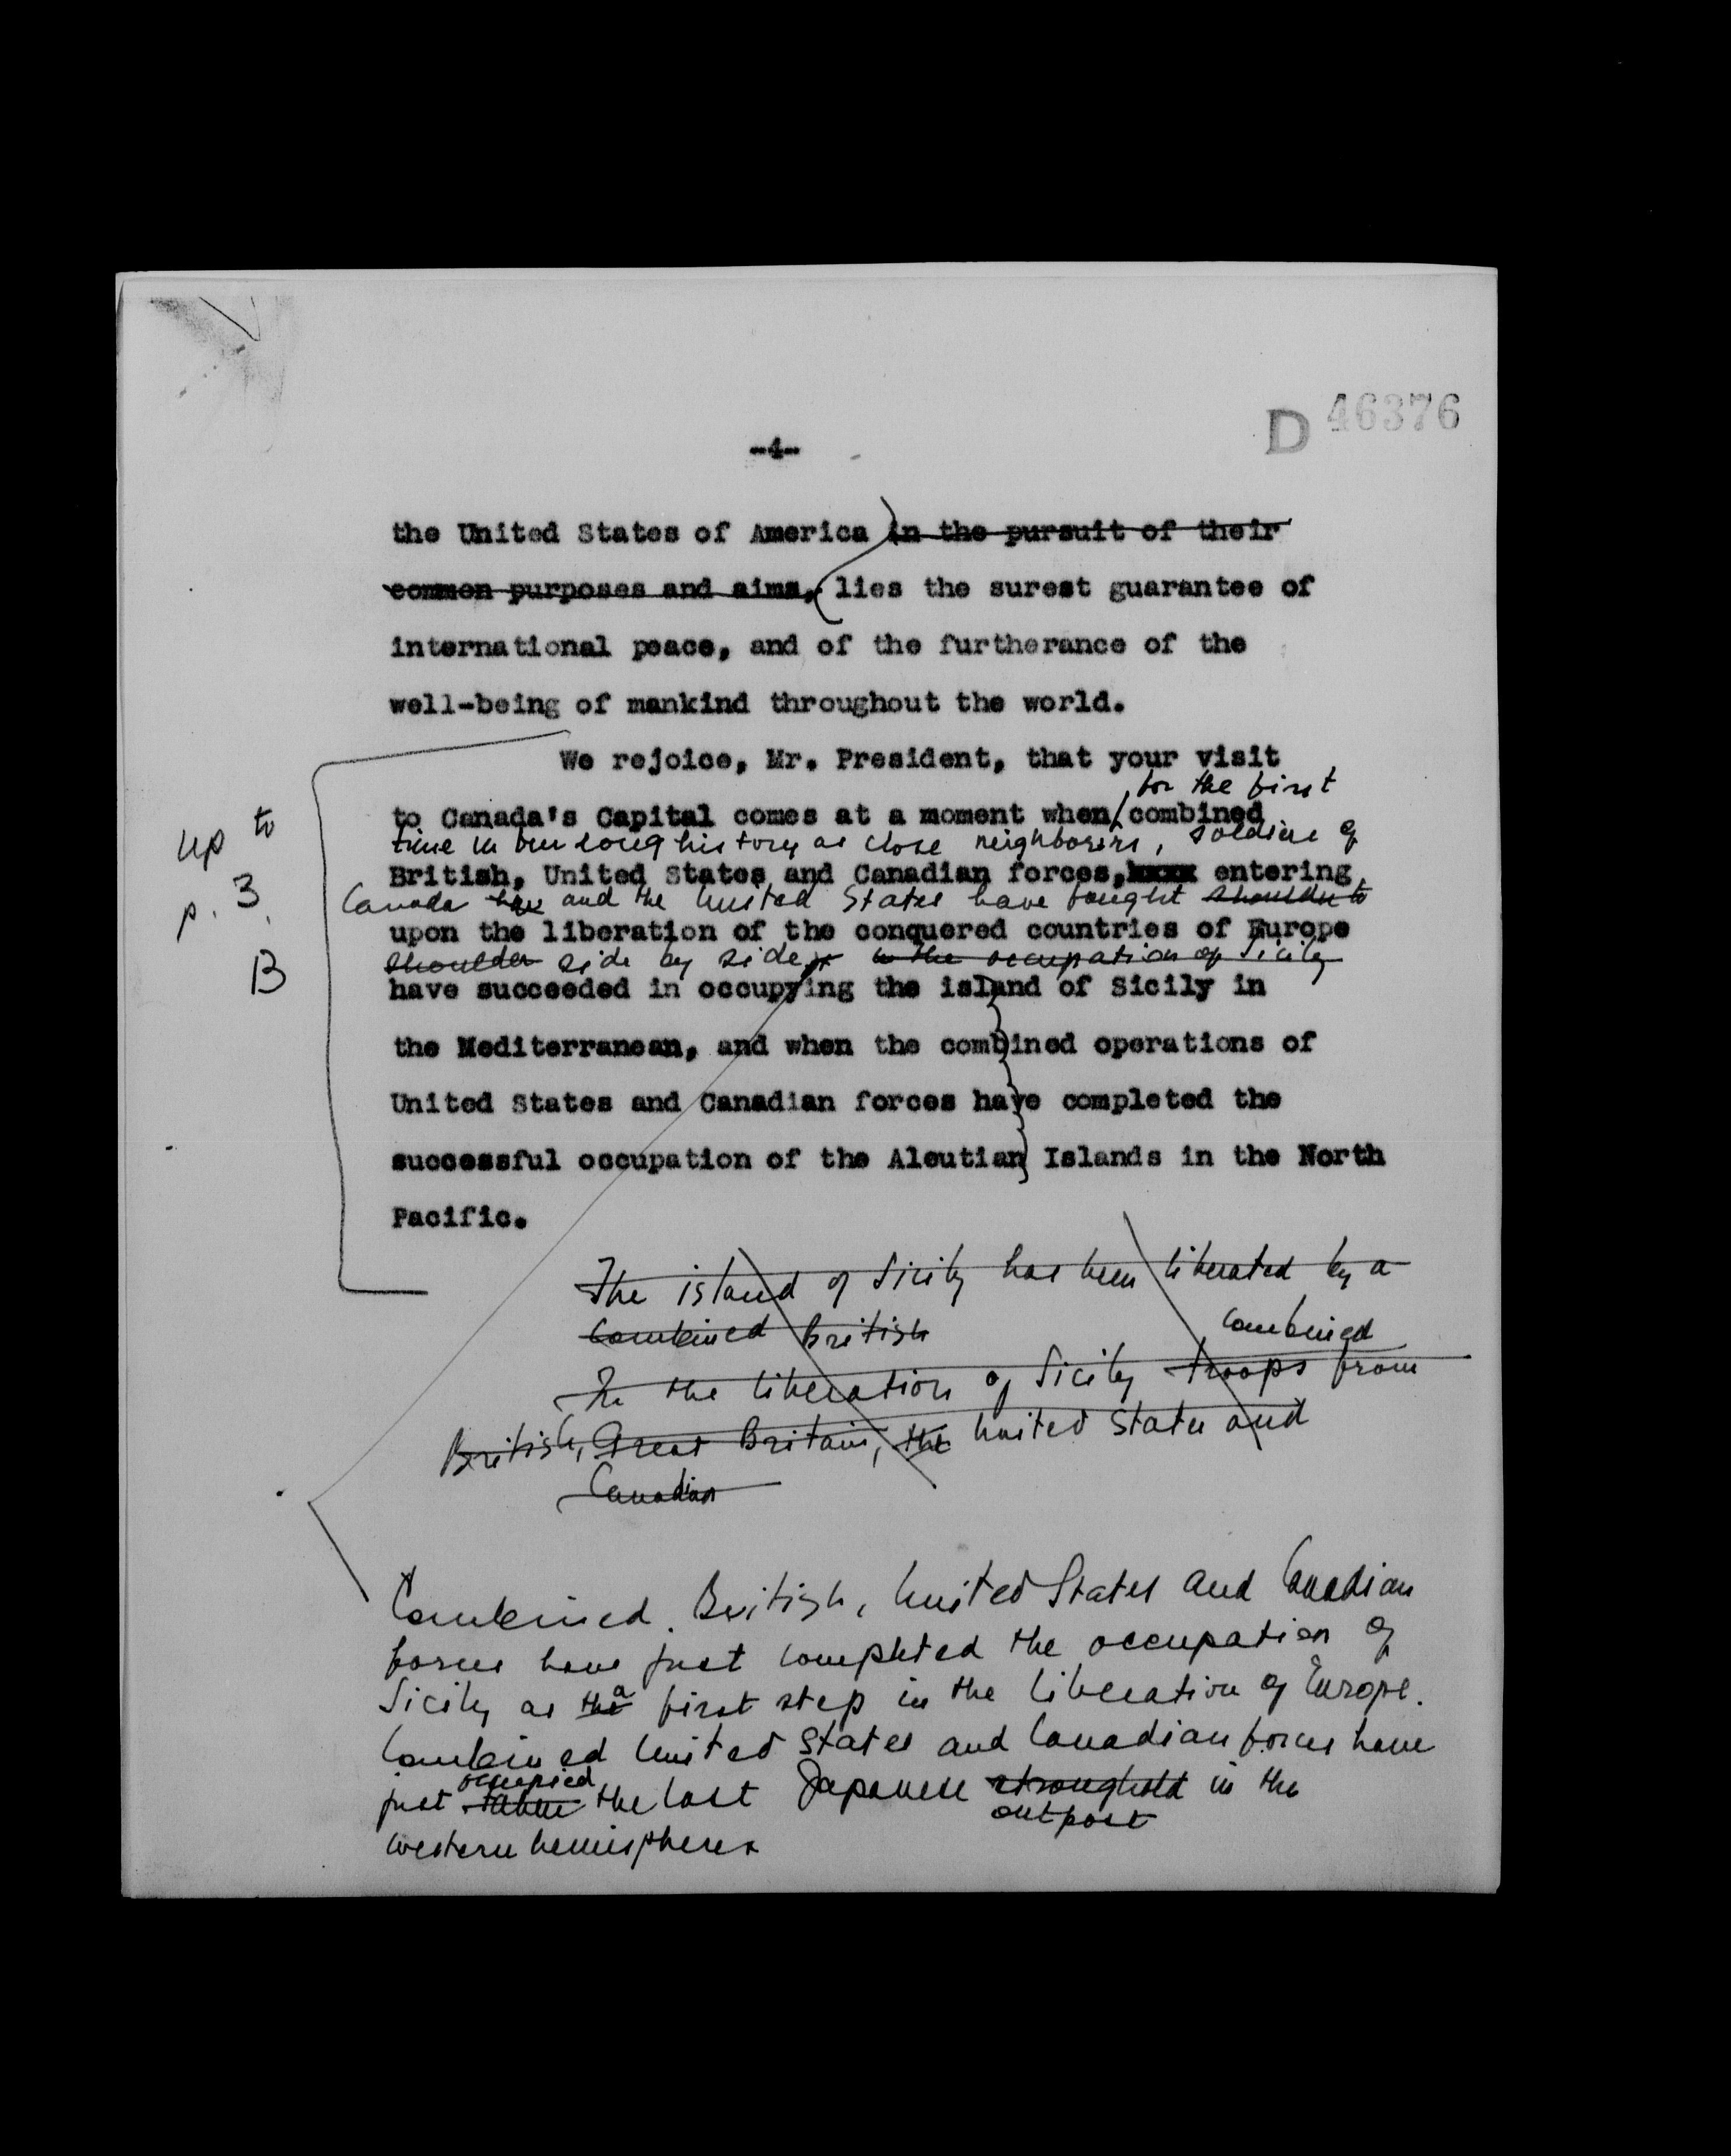 D 46376
-4-
the United States of America in the pursuit of their
common purposes and aims, lies the surest guarantee of
international peace, and of the furtherance of the
well-being of mankind throughout the world.
We rejoice, Mr. President, that your visit
for the first
to Canada's Capital comes at a moment when combined
time in our long history as close neighbours, soldiers of
British, United States and Canadian forces, xxxx entering
Canada have and the United States have fought shoulder to
upon the liberation of the conquered countries of Europe
shoulder side by side in the occupation of Sicily
have succeeded in occupying the island of Sicily in
the Mediterranean, and when the combined operations of
United States and Canadian forces have completed the
successful occupation of the Aleutian Islands in the North
Pacific.
up to
p. 3.
B
The island of Sicily has been liberated by a
combined British
combined
In the liberation of Sicily troops from
British, Great Britain, the United States and
Canadian
Combined British, United States and Canadian
forces have just completed the occupation of
a
Sicily as the first step in the liberation of Europe.
Combined United States and Canadian forces have
occupied
just taken the last Japanese stronghold in the
outpost
western hemisphere.